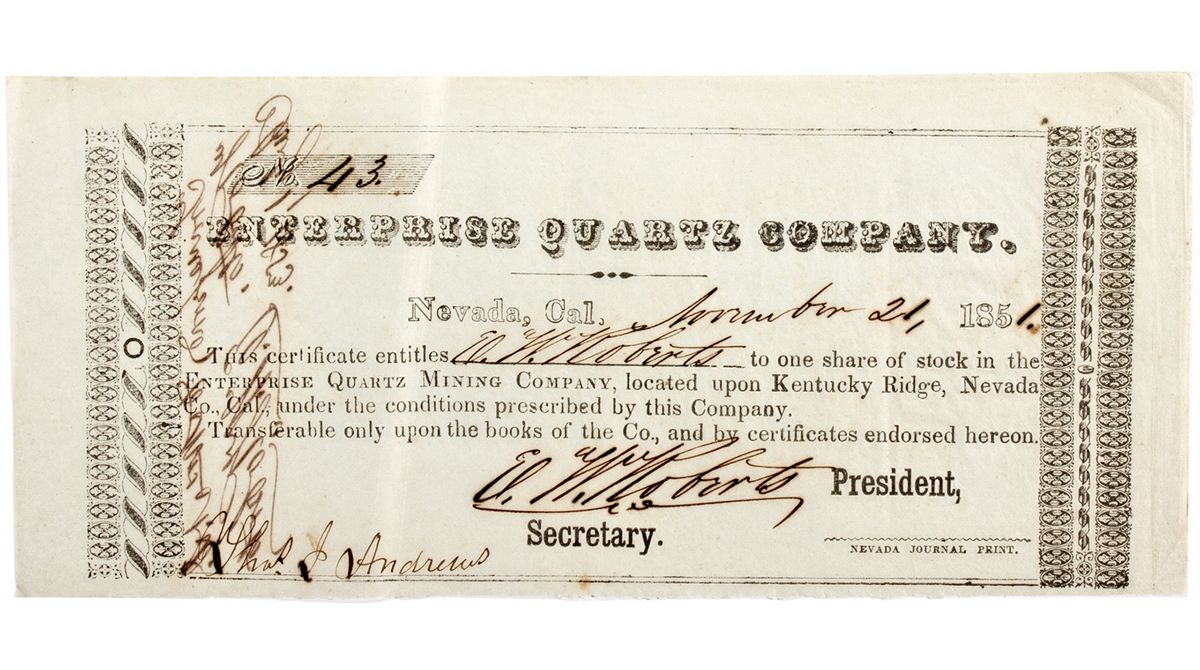 No. 43.
ENTERPRISE QUARTZ COMPANY.
Nevada, Cal. November 21, 1851.
This certificate entitles E. W. Roberts to one share of stock in the
ENTERPRISE QUARTZ MINING COMPANY, located upon Kentucky Ridge, Nevada
Co., Cal., under the conditions prescribed by this Company.
Transferable only upon the books of the Co., and by certificates endorsed hereon.
E. W. Roberts President,
Secretary.
NEVADA JOURNAL PRINT.
Thos. J Andrews